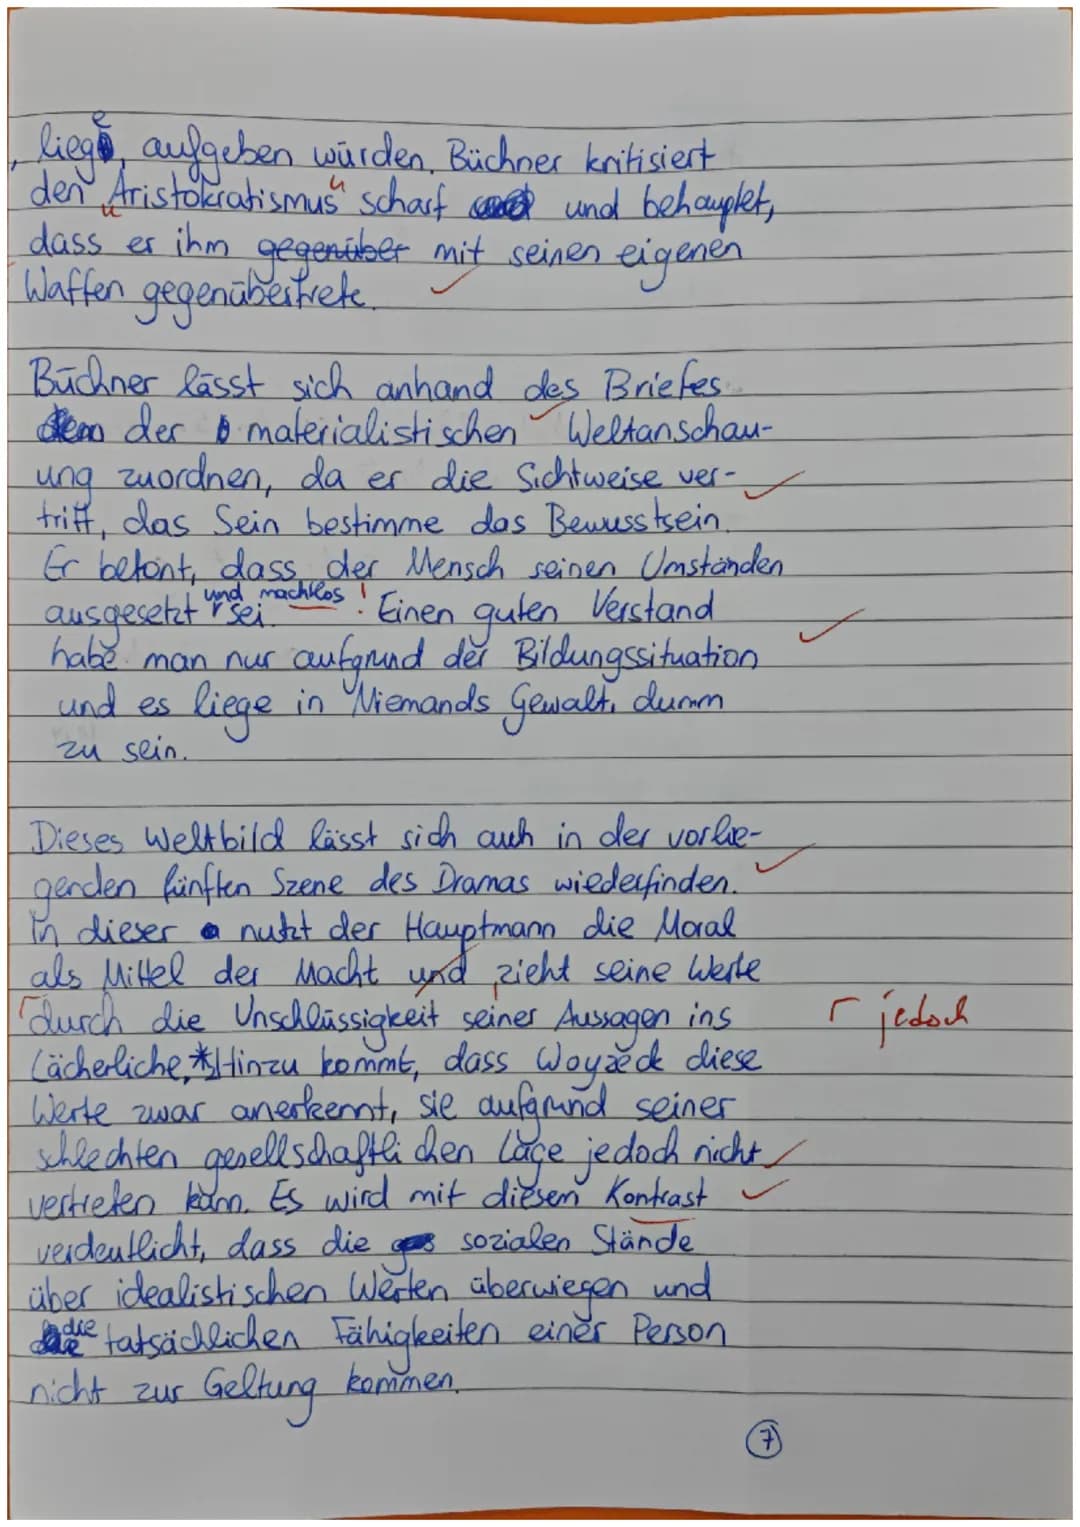 , liege, aufgeben würden. Büchner kritisiert
den "Aristokratismus" scharf und behauptet,
dass er ihm gegenüber mit seinen eigenen
Waffen gegenübertrete.
Büchner lässt sich anhand des Briefes
der materialistischen Weltanschau-
ung zuordnen, da er die Sichtweise ver-
tritt, das Sein bestimme das Bewusstsein.
Er betont, dass der Mensch seinen Umständen
ausgesetzt und machtlos sei. ! Einen guten Verstand
habe man nur aufgrund der Bildungssituation
und es liege in Niemands Gewalt, dumm
zu sein.
Dieses Weltbild lässt sich auch in der vorlie-
genden fünften Szene des Dramas wiederfinden.
In dieser nutzt der Hauptmann die Moral
als Mittel der Macht und, zieht seine Werte
durch die Unschlüssigkeit seiner Aussagen ins jedoch
Lächerliche.* Hinzu kommt, dass Woyzeck diese
Werte zwar anerkennt, sie aufgrund seiner
schlechten gesellschaftlichen Lage jedoch nicht
vertreten kann. Es wird mit diesem Kontrast
verdeutlicht, dass die sozialen Stände
über idealistischen Werten überwiegen und
die tatsächlichen Fähigkeiten einer Person
nicht zur Geltung kommen.
7